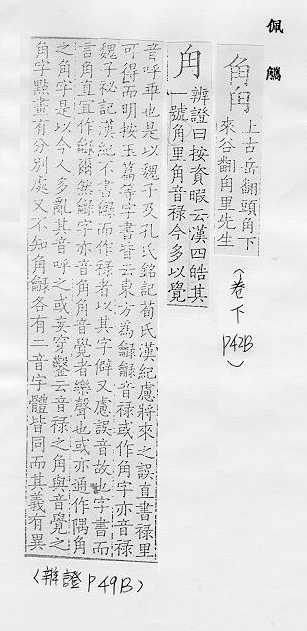 佩觿
角甪
上古岳翻頭角下
來谷翻角里先生
(卷下 P42B)
甪
辨證曰按資暇云漢四皓其
一號角里角音祿今多以覺
音呼乖也是以魏子及孔氏銘記荀氏漢紀慮將來之誤直書祿里
可得而明按玉篇等字書皆云東方為龣龣音祿或作角字亦音祿
魏子秘記漢紀不書龣而作祿者以其字僻又慮誤音故也字書而
言角直宜作龣爾然龣字亦音角角音覺者樂聲也或亦通作隅角
之角字是以今人多亂其音呼之或妄穿鑿云音祿之角與音覺之
角字點畫有分別處又不知角龣各有二音字體皆同而其義有異
(辨證 P49B)